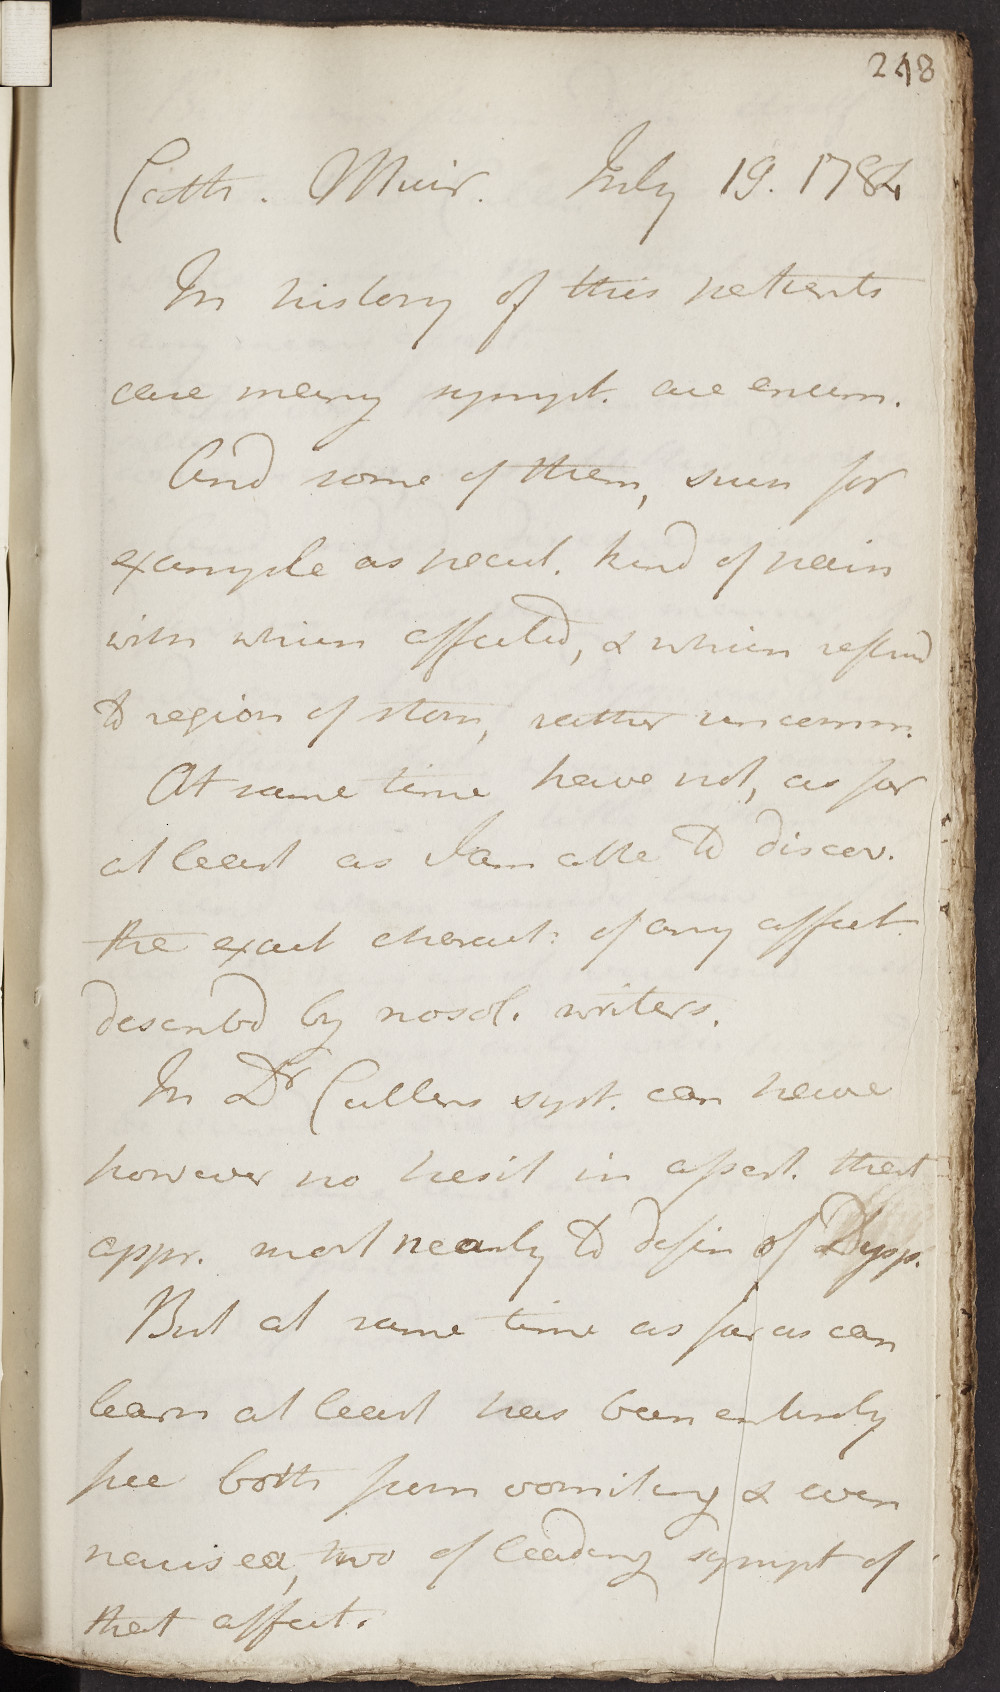 248
Cath. Muir. July 19. 1784
In history of this patients
case many sympt. are enum.
And some of them, such for
example as pecul. kind of pain
with which affected, & which refered
to region of stom, rather uncomm.
At same time have not, as far
at least as I am able to discov.
the exact charact: of any affect.
describd by nosol. writers.
In Dr Cullens syst. can have
however no hesit in assert. that
appr. most nearly to defin of Dysp.
But at same time as far as can
learn at least has been entirely
free both from vomiting & even
nausea, two of leading sympt of
that affect.